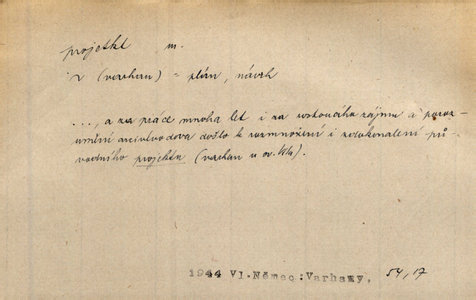 projekt m.
~ (varhanu) = plán, návrh
..., a za prád mnoha let i za rostoucího zájmu a poroz-
umění arcivévodova došlo k rozmnožení i zdokonalení pů-
vodního projektu (varhan u sv. Víta).
1944 Vl.Němec:Varhany, 54,17